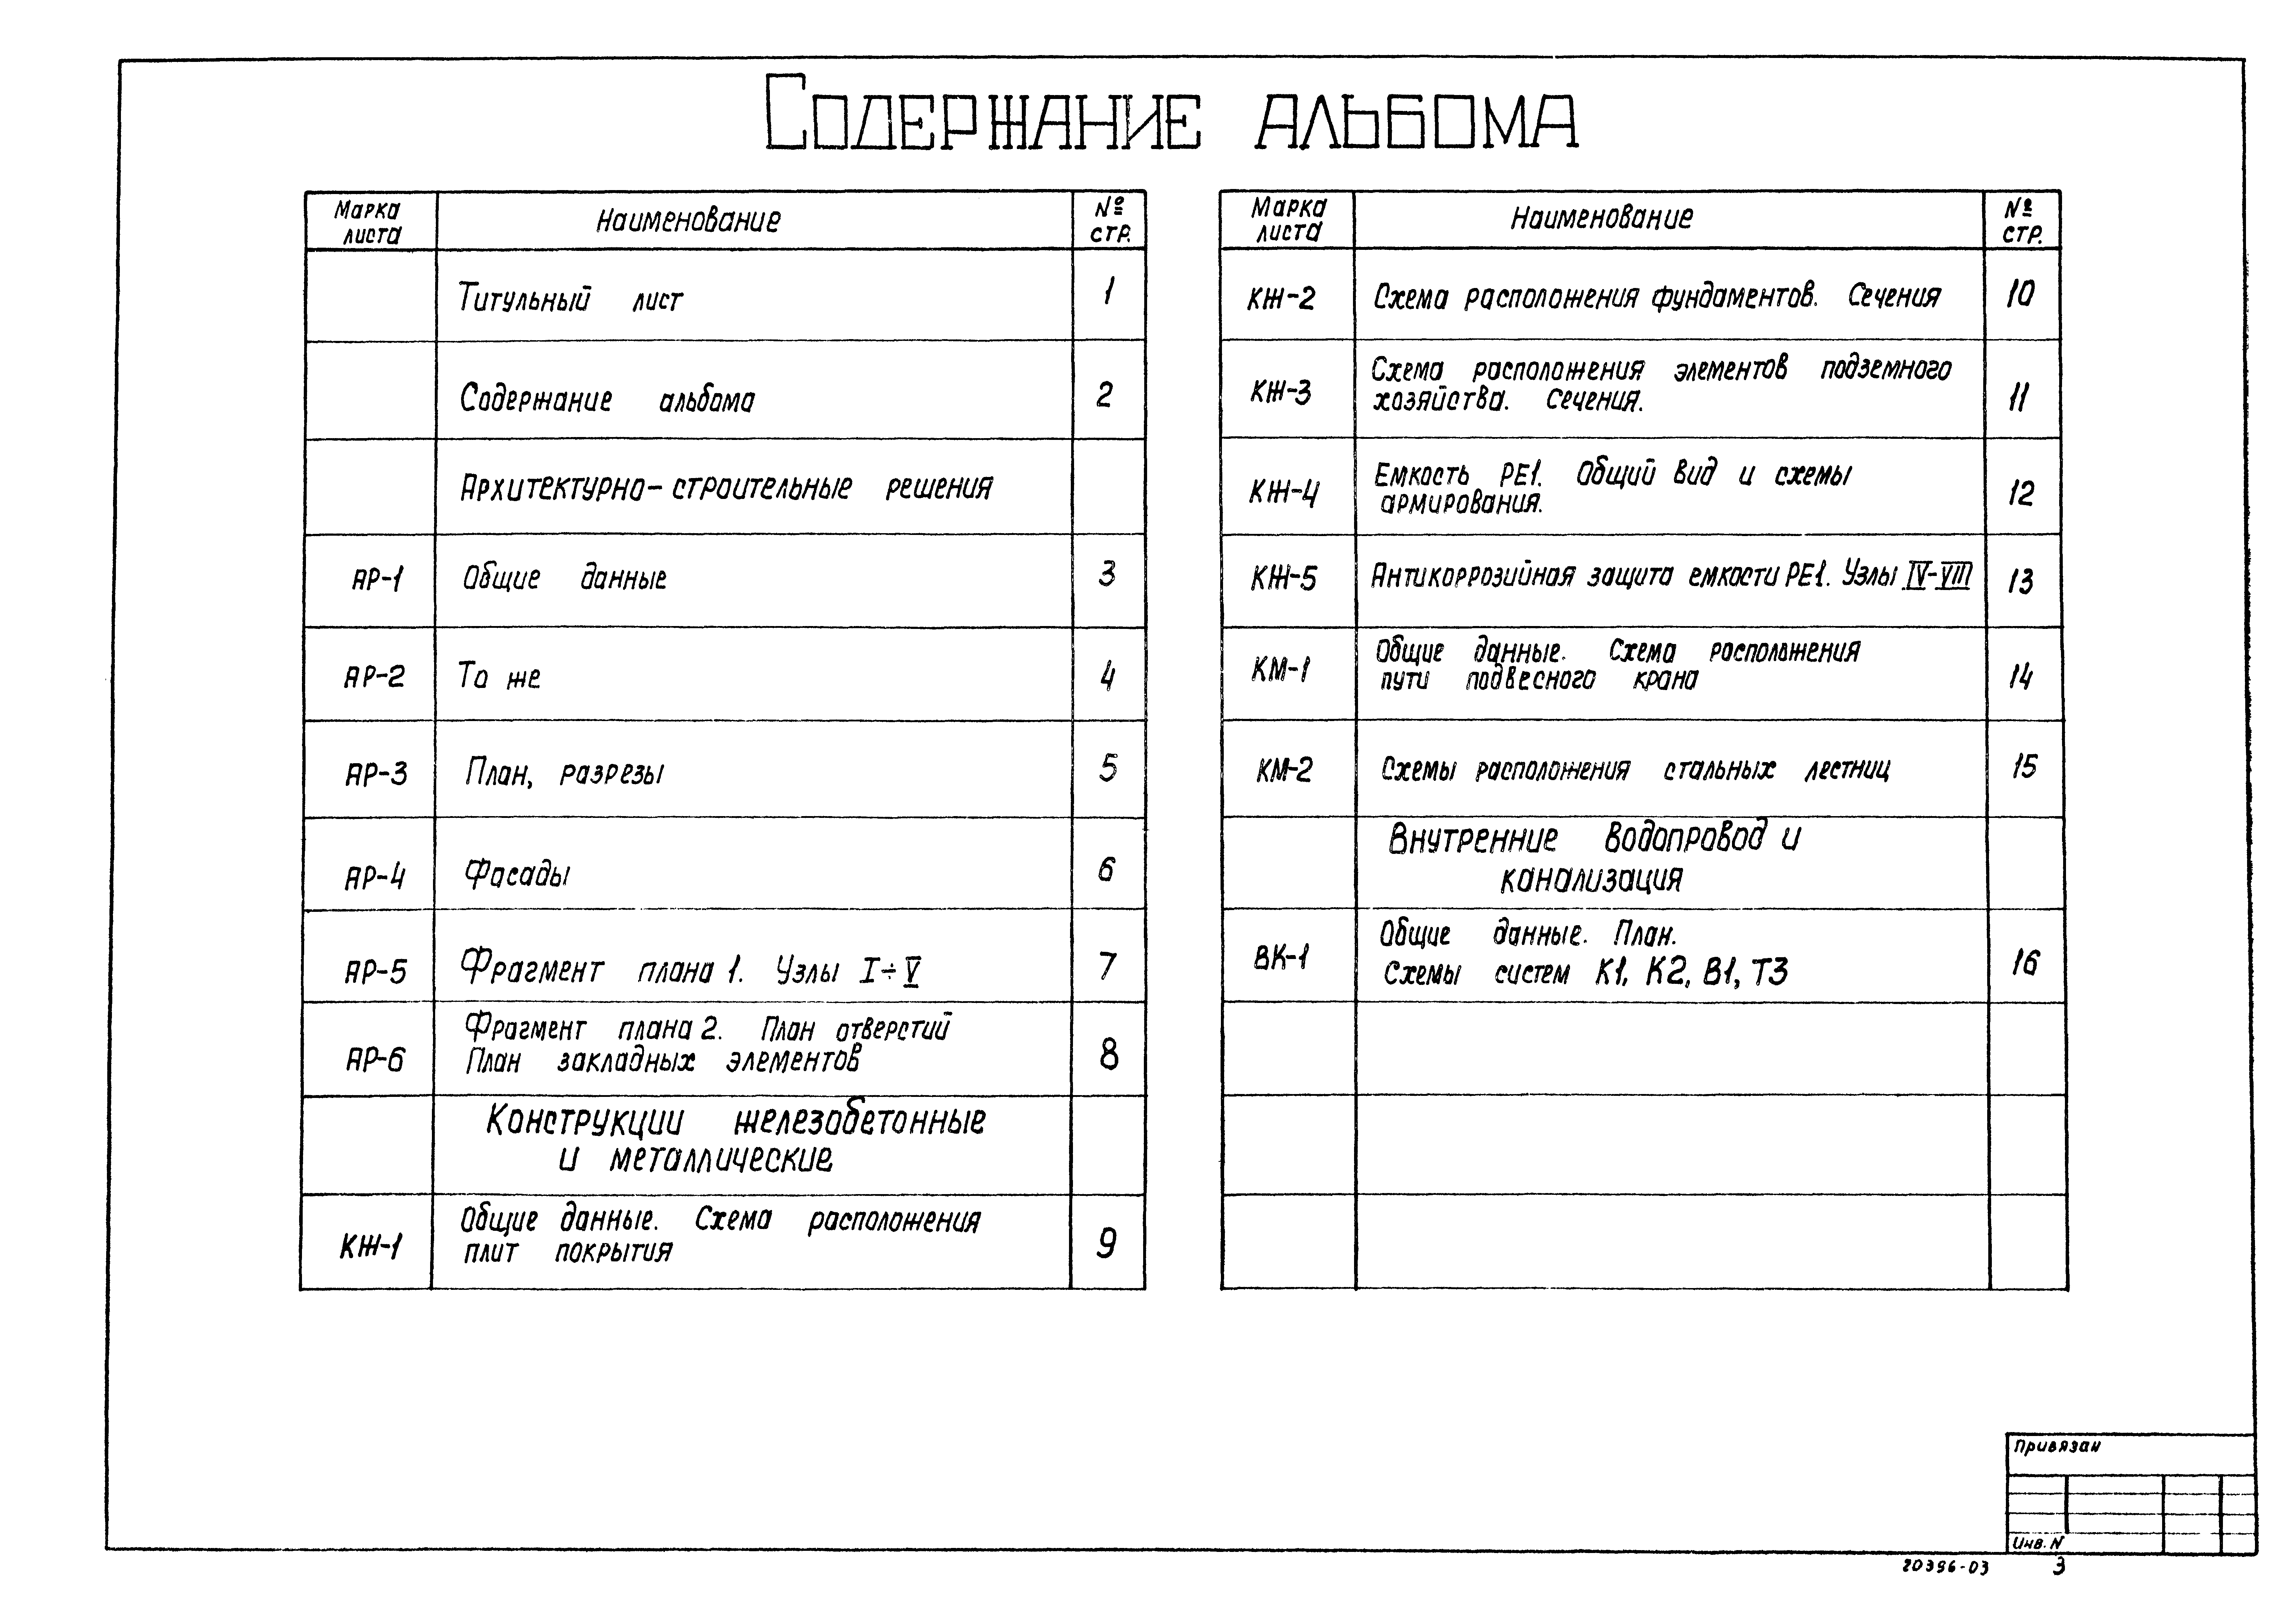 Содержание альбома
Марка листа Наименование № стр.
Титульный лист 1
Содержание альбома 2
Архитектурно-строительные решения
АР-1 Общие данные 3
АР-2 То же 4
АР-3 План, разрезы 5
АР-4 Фасады 6
АР-5 Фрагмент плана 1. Узлы I÷V 7
АР-6 Фрагмент плана 2. План отверстий
План закладных элементов 8
Конструкции железобетонные
и металлические
КЖ-1 Общие данные. Схема расположения
плит покрытия 9
Марка листа Наименование № стр.
КЖ-2 Схема расположения фундаментов. Сечения 10
КЖ-3 Схема расположения элементов подземного
хозяйства. Сечения. 11
КЖ-4 Емкость РЕ1. Общий вид и схемы
армирования. 12
КЖ-5 Антикоррозийная защита емкости РЕ1. Узлы IV-VIII 13
КМ-1 Общие данные. Схема расположения
пути подвесного крана 14
КМ-2 Схемы расположения стальных лестниц 15
Внутренние водопровод и
канализация
ВК-1 Общие данные. План.
Схемы систем К1, К2, В1, Т3 16
Привязан
Инв. N
20396-03 3